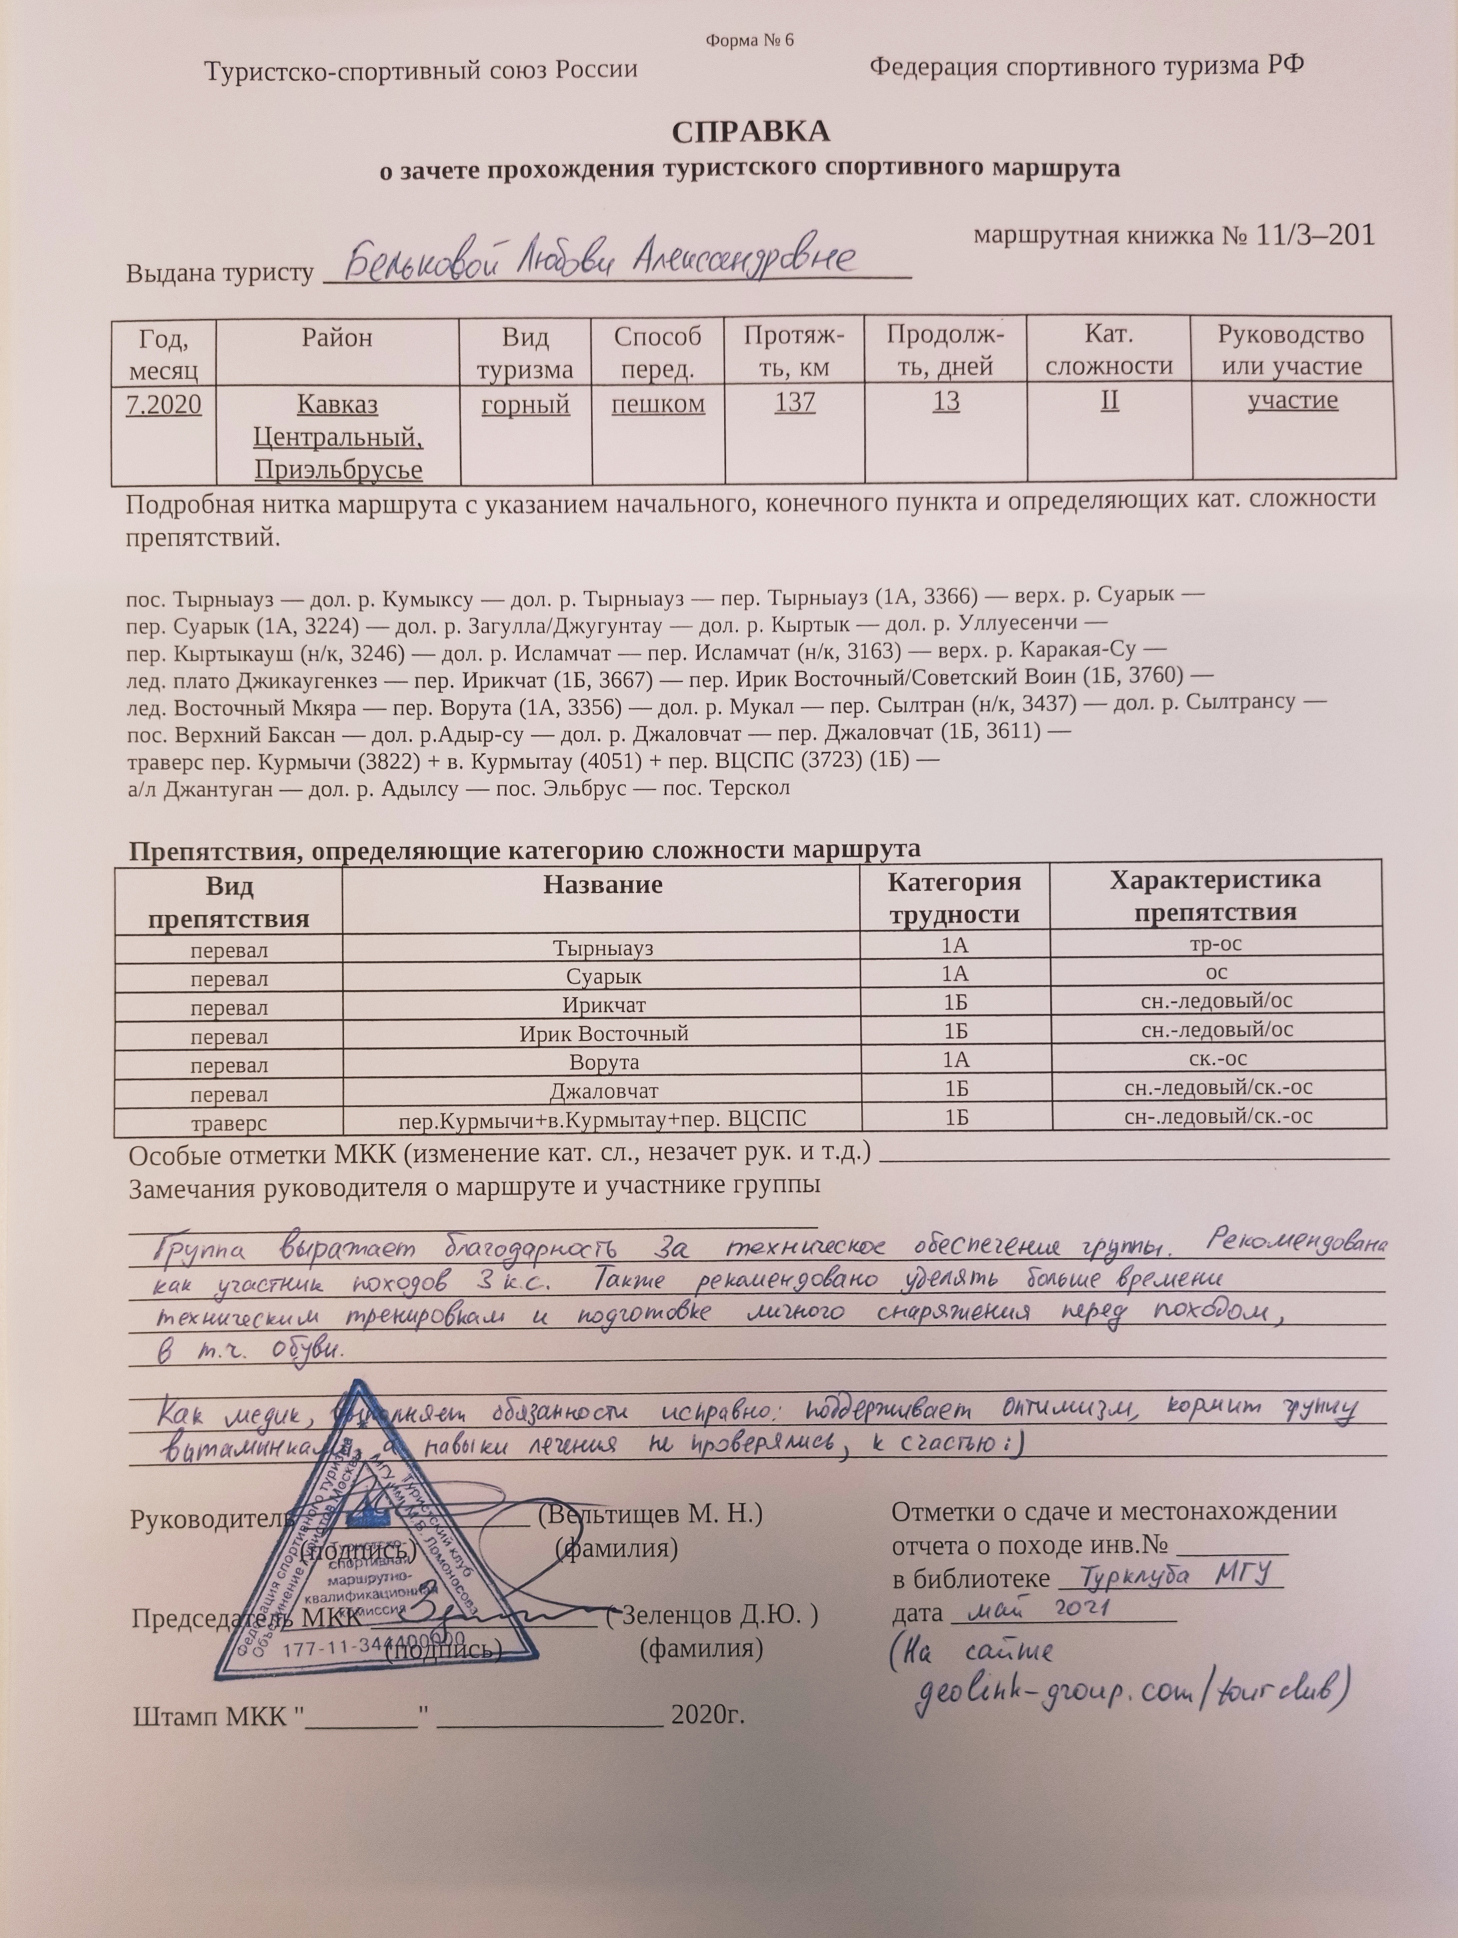 Форма № 6
Туристско-спортивный союз России Федерация спортивного туризма РФ
СПРАВКА
о зачете прохождения туристского спортивного маршрута
маршрутная книжка № 11/3–201
Выдана туристу Бельковой Любови Александровне
Год, месяц Район Вид туризма Способ перед. Протяж-ть, км Продолж-ть, дней Кат. сложности Руководство или участие
7.2020 Кавказ Центральный, Приэльбрусье горный пешком 137 13 II участие
Подробная нитка маршрута с указанием начального, конечного пункта и определяющих кат. сложности
препятствий.
пос. Тырныауз — дол. р. Кумыксу — дол. р. Тырныауз — пер. Тырныауз (1А, 3366) — верх. р. Суарык —
пер. Суарык (1А, 3224) — дол. р. Загулла/Джугунтау — дол. р. Кыртык — дол. р. Уллуесенчи —
пер. Кыртыкауш (н/к, 3246) — дол. р. Исламчат — пер. Исламчат (н/к, 3163) — верх. р. Каракая-Су —
лед. плато Джикаугенкез — пер. Ирикчат (1Б, 3667) — пер. Ирик Восточный/Советский Воин (1Б, 3760) —
лед. Восточный Мкяра — пер. Ворута (1А, 3356) — дол. р. Мукал — пер. Сылтран (н/к, 3437) — дол. р. Сылтрансу —
пос. Верхний Баксан — дол. р.Адыр-су — дол. р. Джаловчат — пер. Джаловчат (1Б, 3611) —
траверс пер. Курмычи (3822) + в. Курмытау (4051) + пер. ВЦСПС (3723) (1Б) —
а/л Джантуган — дол. р. Адылсу — пос. Эльбрус — пос. Терскол
Препятствия, определяющие категорию сложности маршрута
Вид препятствия Название Категория трудности Характеристика препятствия
перевал Тырныауз 1А тр-ос
перевал Суарык 1А ос
перевал Ирикчат 1Б сн.-ледовый/ос
перевал Ирик Восточный 1Б сн.-ледовый/ос
перевал Ворута 1А ск.-ос
перевал Джаловчат 1Б сн.-ледовый/ск.-ос
траверс пер.Курмычи+в.Курмытау+пер. ВЦСПС 1Б сн-.ледовый/ск.-ос
Особые отметки МКК (изменение кат. сл., незачет рук. и т.д.)
Замечания руководителя о маршруте и участнике группы
Группа выражает благодарность за техническое обеспечение группы. Рекомендована
как участник походов 3 к.с. Также рекомендовано уделять больше времени
техническим тренировкам и подготовке личного снаряжения перед походом,
в т.ч. обуви.
Как медик, выполняет обязанности исправно: поддерживает оптимизм, кормит группу
витаминками, а навыки лечения не проверялись, к счастью :)
Руководитель (Вельтищев М. Н.)
(подпись) (фамилия)
Председатель МКК (Зеленцов Д.Ю. )
(подпись) (фамилия)
Штамп МКК "________" ________________ 2020г.
Отметки о сдаче и местонахождении
отчета о походе инв.№
в библиотеке Турклуба МГУ
дата май 2021
(На сайте
geolink-group.com/tourclub)
Федерация спортивного туризма
Объединение туристов Москвы
Туристский клуб
МГУ им. М.В. Ломоносова
Туристско-
спортивная
маршрутно-
квалификационная
комиссия
177-11-344400000